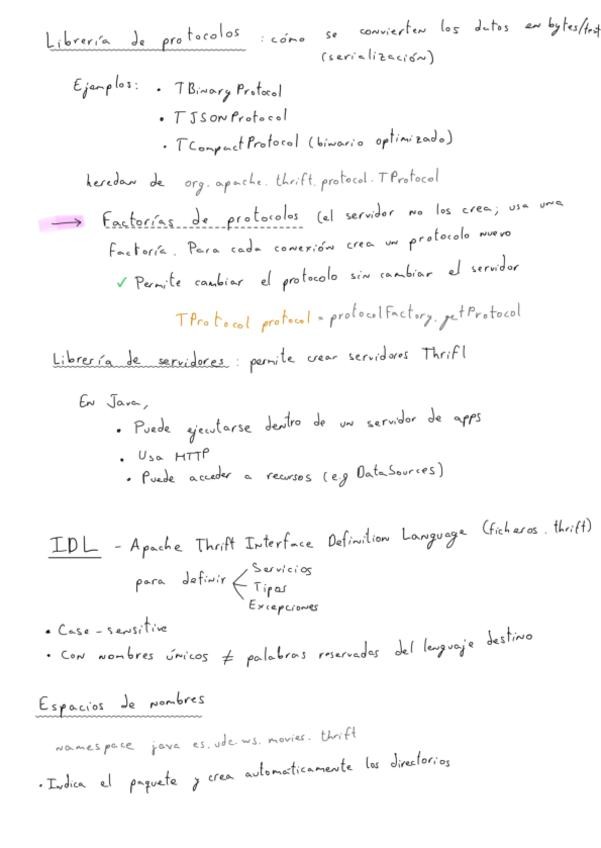 Librería de protocolos : cómo se convierten los datos en bytes/text
(serialización)
Ejemplos: • TBinaryProtocol
• TJSONProtocol
• TCompactProtocol (binario optimizado)
heredan de org.apache.thrift.protocol.TProtocol
→ Factorías de protocolos (el servidor no los crea; usa una
factoría. Para cada conexión crea un protocolo nuevo
✓ Permite cambiar el protocolo sin cambiar el servidor
TProtocol protocol = protocolFactory.getProtocol
Librería de servidores : permite crear servidores Thrift
En Java,
• Puede ejecutarse dentro de un servidor de apps
• Usa HTTP
• Puede acceder a recursos (eg DataSources)
IDL - Apache Thrift Interface Definition Language (ficheros .thrift)
Servicios
para definir < Tipos
Excepciones
• Case-sensitive
• Con nombres únicos ≠ palabras reservadas del lenguaje destino
Espacios de nombres
namespace java es.udc.ws.movies.thrift
• Indica el paquete y crea automáticamente los directorios